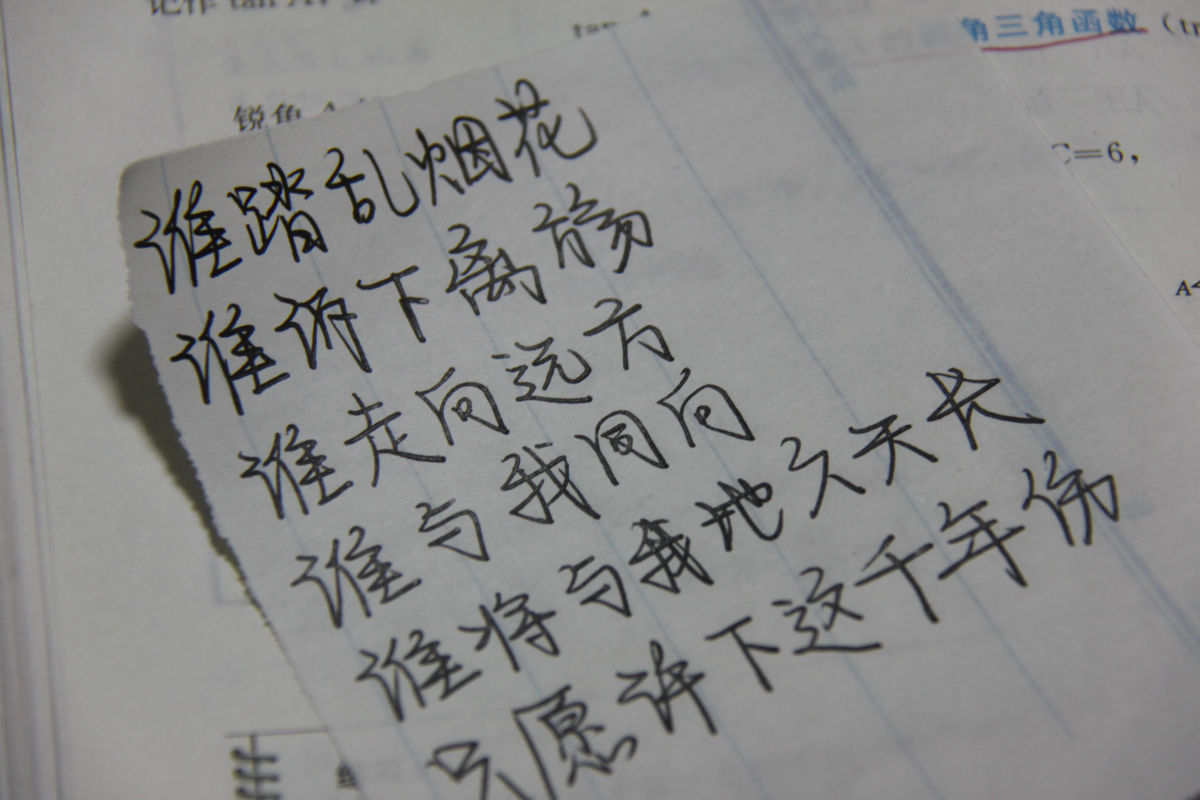 记作 tan A，
角三角函数（tr
锐角 A
C=6，
谁踏乱烟花
谁诉下离觞
谁走向远方
谁与我同向
谁将与我地久天长
只愿许下这千年伤